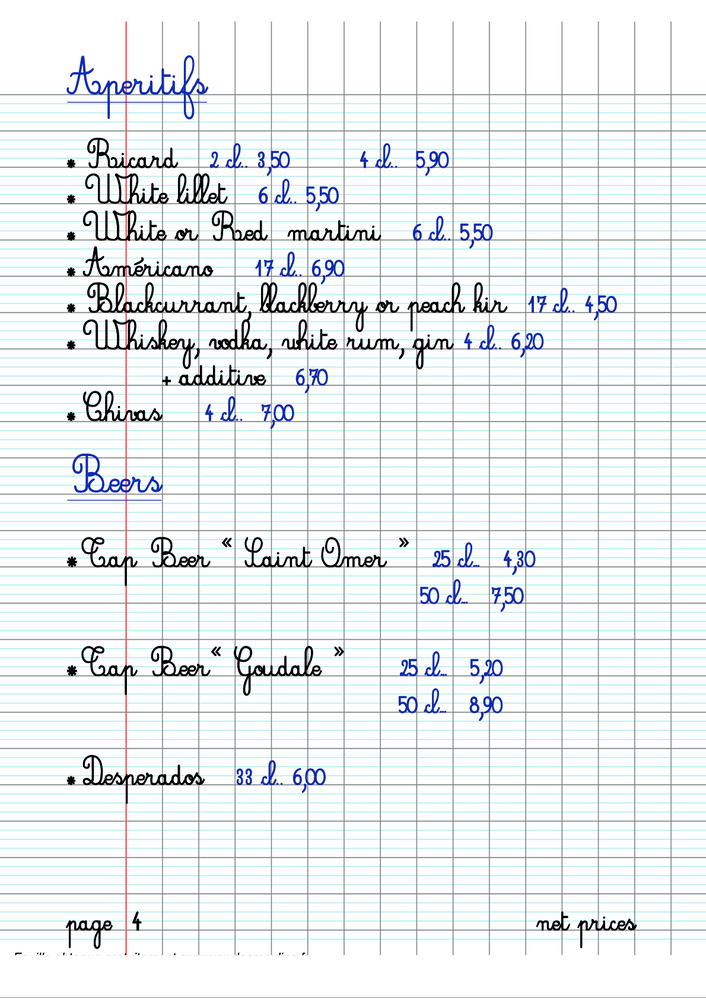 Aperitifs
* Ricard 2 cl.. 3,50 4 cl.. 5,90
* White lillet 6 cl.. 5,50
* White or Red martini 6 cl.. 5,50
* Américano 17 cl.. 6,90
* Blackcurrant, blackberry or peach kir 17 cl.. 4,50
* Whiskey, vodka, white rum, gin 4 cl.. 6,20
+ additive 6,70
* Chivas 4 cl.. 7,00
Beers
* Tap Beer « Saint Omer » 25 cl... 4,30
50 cl... 7,50
* Tap Beer « Goudale » 25 cl... 5,20
50 cl... 8,90
* Desperados 33 cl.. 6,00
page 4 net prices